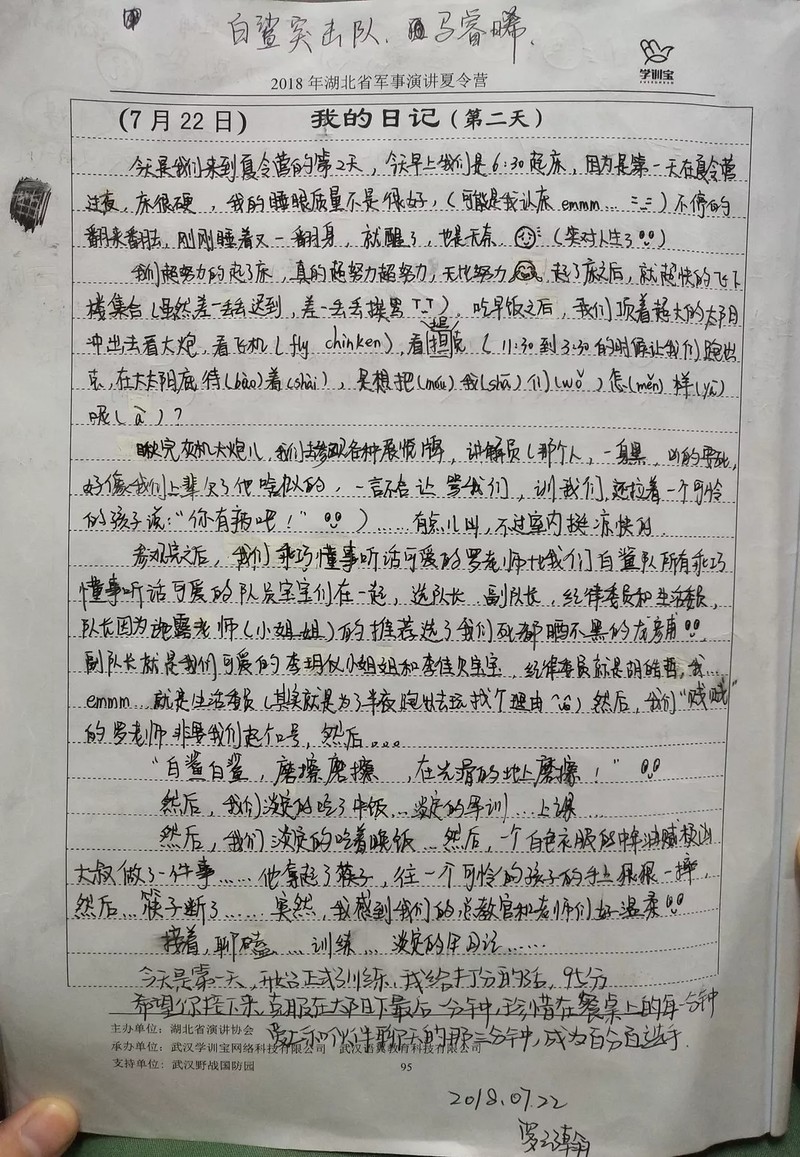 白鲨突击队. 马睿晞.
学训宝
2018 年湖北省军事演讲夏令营
(7 月 22 日) 我的日记 (第二天)
今天是我们来到夏令营的第2天，今天早上我们是6:30起床，因为是第一天在夏令营
过夜，床很硬，我的睡眠质量不是很好，(可能是我认床 emmm... =_=) 不停的
翻来翻去，刚刚睡着又一翻身，就醒了，也是无奈 (笑对人生了)
我们超努力的起了床，真的超努力超努力，无比努力 起了床之后，就超快的飞下
楼集合 (虽然差一丢丢迟到，差一丢丢挨骂 T_T)，吃早饭之后，我们顶着超大的太阳
冲出去看大炮，看飞机 (fly chinken)，看坦克 (11:30 到 3:30 的时候让我们跑出
去，在大太阳底待(bào)着(shài)，是想把(móu)我(shā)们(wǒ)怎(men)样(ya)
呢(à)？
瞅完灰机大炮儿，我们去参观各种展览牌，讲解员 (那个人，一身黑，凶的要死，
好像我们上辈欠了他啥似的，一言不合让 骂我们，训我们，还拉着一个可怜
的孩子说："你有病吧！" ) ...... 有点儿凶，不过室内挺凉快的.
参观完之后，我们乖巧懂事听话可爱的罗老师让我们白鲨队所有乖巧
懂事听话可爱的队员宝宝们在一起，选队长，副队长，纪律委员和生活委员，
队长因为 老师 (小姐姐) 的推荐选了我们死都晒不黑的
副队长就是我们可爱的李玥 小姐姐和李佳 宝宝，纪律委员就是胡皓哲，我...
emmm... 就是生活委员 (其实就是为了半夜跑出去玩找个理由) 然后，我们"贼贼"
的罗老师非要我们起个口号，然后。。。
"白鲨白鲨，磨擦磨擦，在光滑的地上磨擦！"
然后，我们淡定的吃了中饭...淡定的军训...上课...
然后，我们淡定的吃着晚饭...然后，一个白色衣服的中年油腻横凶
大叔做了一件事......他拿起了筷子，往一个可怜的孩子的手上狠狠一摔，
然后...筷子断了......突然，我感到我们的总教官和老师们好温柔
接着，聊嗑....训练...淡定的写日记......
今天是第一天，开始正式训练，我给打分的话，95分
希望你接下来，克服在太阳下最后一分钟，珍惜在餐桌上的每一分钟
和伙伴聊天的那三分钟，成为百分百选手.
主办单位：湖北省演讲协会
承办单位：武汉学训宝网络科技有限公司 武汉 教育科技有限公司
支持单位：武汉野战国防园
95
2018.07.22